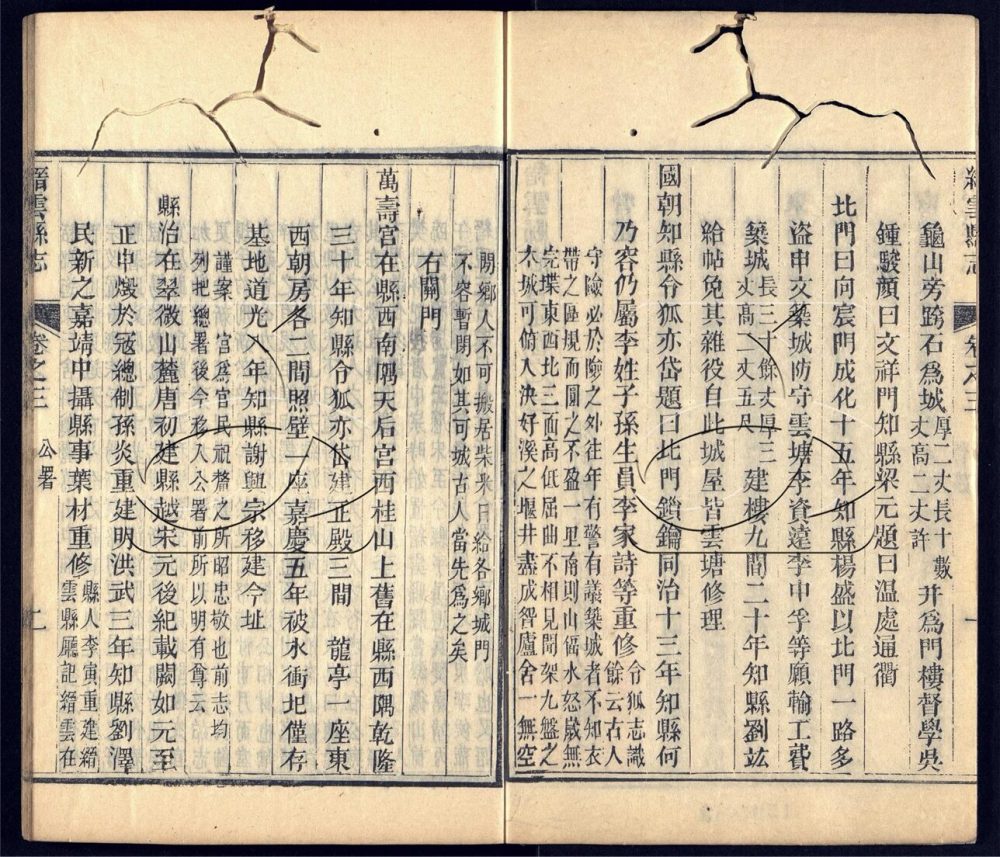 縉雲縣志 卷之三
龜山旁跨石爲城厚二丈長十數丈高二丈許并爲門樓督學吳
鍾駿顏曰文祥門知縣梁元題曰温處通衢
北門曰向宸門成化十五年知縣楊盛以北門一路多
盜申文築城防守雲塘李資遠李中孚等願輸工費
築城長三丈寸餘丈厚三丈高二丈五尺建樓九間二十年知縣劉竑
給帖免其雜役自此城屋皆雲塘修理
國朝知縣令狐亦岱題曰北門鎖鑰同治十三年知縣何
乃容仍屬李姓子孫生員李家詩等重修令狐志識餘云古人
守險必於險之外往年有警有議築城者不知衣
帶之區規而圍之不盈一里南則山偪水怒歲無
完堞東西北三面高低屈曲不相見聞架九盤之
木城可俯入決好溪之堰井盡成智廬舍一無空
閒鄉人不可搬居柴米日給各鄉城門
不容暫閉如其可城古人當先爲之矣
右關門
萬壽宮在縣西南隅天后宮西桂山上舊在縣西隅乾隆
三十年知縣令狐亦岱建正殿三間 龍亭一座東
西朝房各二間照壁一座嘉慶五年被水衝圯僅存
基地道光 年知縣謝興宗移建今址
謹案 宮爲官民祝釐之所昭忠敬也前志均
列把總署後今移入公署前所以明有尊云
縣治在翠微山麓唐初建縣越宋元後紀載闕如元至
正中燬於寇總制孫炎重建明洪武三年知縣劉澤
民新之嘉靖中攝縣事葉材重修縣人李寅重建縉雲縣廳記縉雲在
縉雲縣志 卷之三 公署